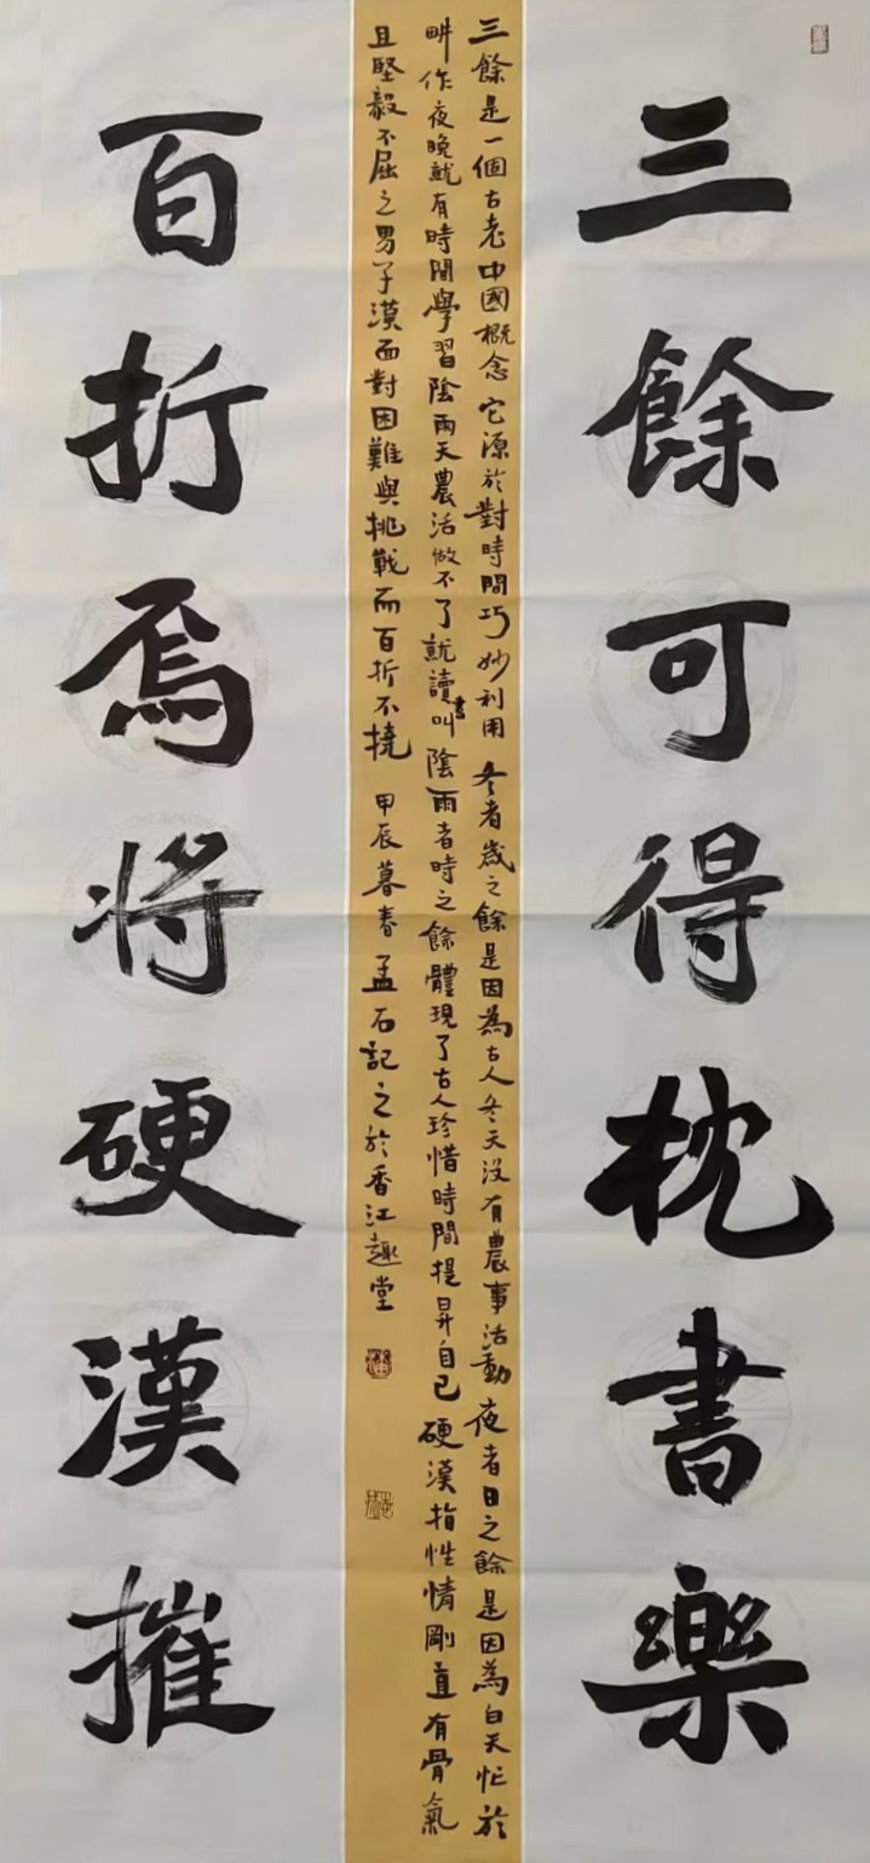 三餘可得枕書樂
三餘是一個古老中國概念它源於對時間巧妙利用冬者歲之餘是因為古人冬天沒有農事活動夜者日之餘是因為白天忙於
畊作夜晚就有時間學習陰雨天農活做不了就讀書叫陰雨者時之餘體現了古人珍惜時間提昇自己硬漢指性情剛直有骨氣
且堅毅不屈之男子漢面對困難與挑戰而百折不撓甲辰暮春孟石記之於香江趣堂
百折焉將硬漢摧